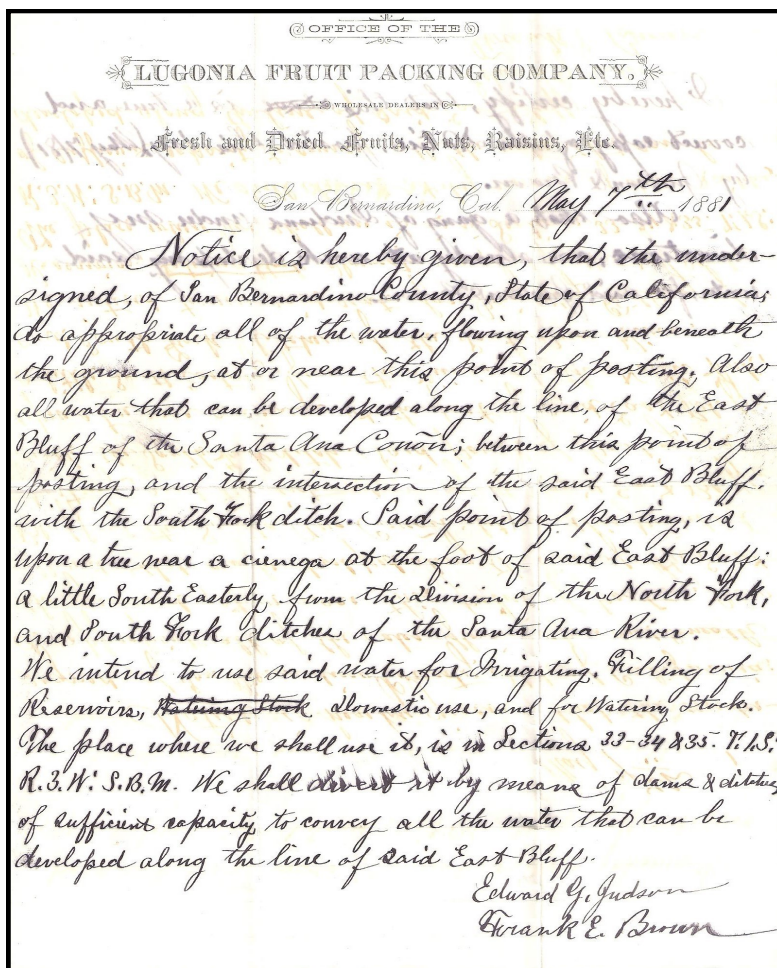 OFFICE OF THE
LUGONIA FRUIT PACKING COMPANY,
WHOLESALE DEALERS IN
Fresh and Dried Fruits, Nuts, Raisins, Etc.
San Bernardino, Cal. May 7th 1881
Notice is hereby given, that the under-
signed, of San Bernardino County, State of California;
do appropriate all of the water, flowing upon and beneath
the ground, at or near this point of posting. Also
all water that can be developed along the line, of the East
Bluff of the Santa Ana Conōn; between this point of
posting, and the intersection of the said East Bluff.
with the South Fork ditch. Said point of posting, is
upon a tree near a cienega at the foot of said East Bluff:
a little South Easterly from the Division of the North Fork,
and South Fork ditches of the Santa Ana River.
We intend to use said water for Irrigating. Filling of
Reservoirs, Watering Stock Domestic use, and for Watering Stock.
The place where we shall use it, is in Sections 33-34 & 35. T.1.S.
R.3.W. S.B.M. We shall divert it by means of dams & ditches
of sufficient capacity to convey all the water that can be
developed along the line of said East Bluff.
Edward G. Judson
Frank E. Brown